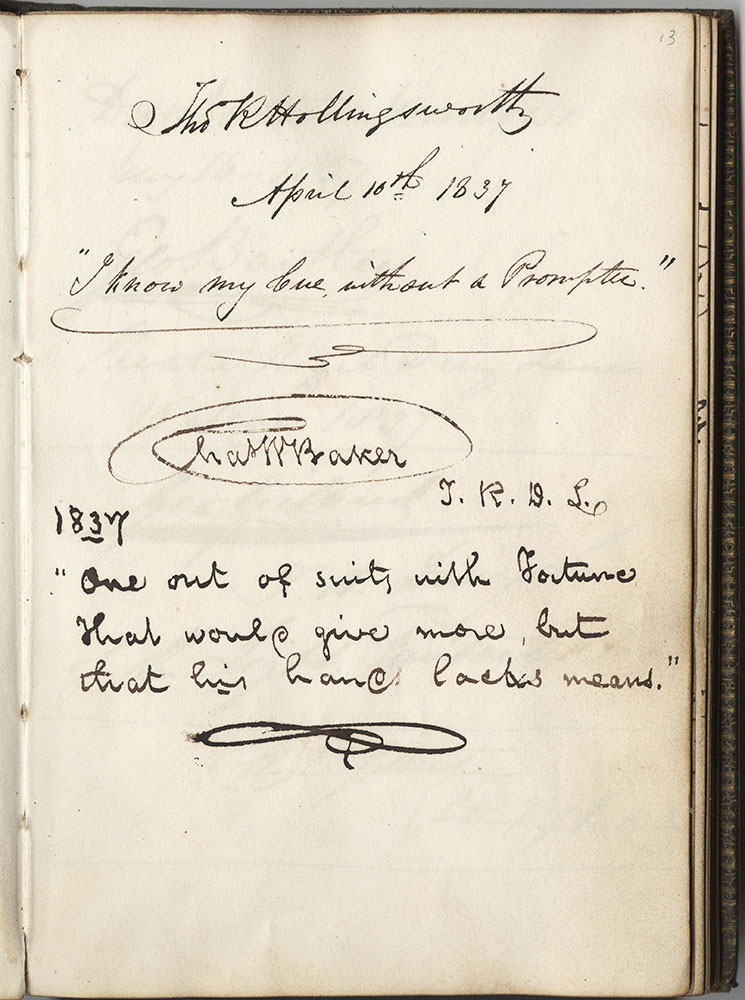 13
Thos R Hollingsworth
April 10th 1837
"I know my Cue, without a Prompter."
Chas W Baker
T. R. D. L.
1837
"One out of suits with Fortune
That would give more, but
that his hand lacks means."